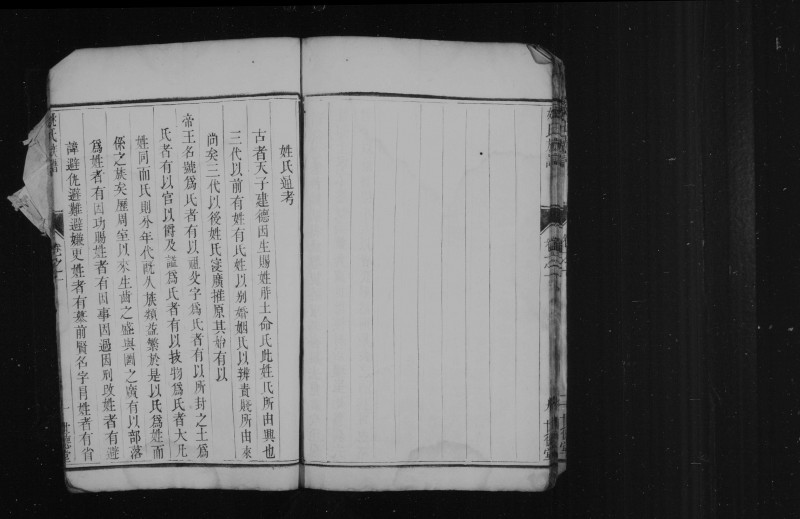 姓氏通考
古者天子建德因生賜姓胙土命氏此姓氏所由興也
三代以前有姓有氏姓以別婚姻氏以辨貴賤所由來
尚矣三代以後姓氏寔廣推原其始有以
帝王名號為氏者有以祖父字為氏者有以所封之土為
氏者有以官以爵及諡為氏者有以技物為氏者大凡
姓同而氏則分年代既久族類益繁於是以氏為姓而
係之族矣歷周室以來生齒之盛與國之廣有以部落
為姓者有因功賜姓者有因事因過因別改姓者有避
諱避仇避難避嫌更姓者有慕前賢名字冒姓者有省
氏族
卷之一
一
世德堂